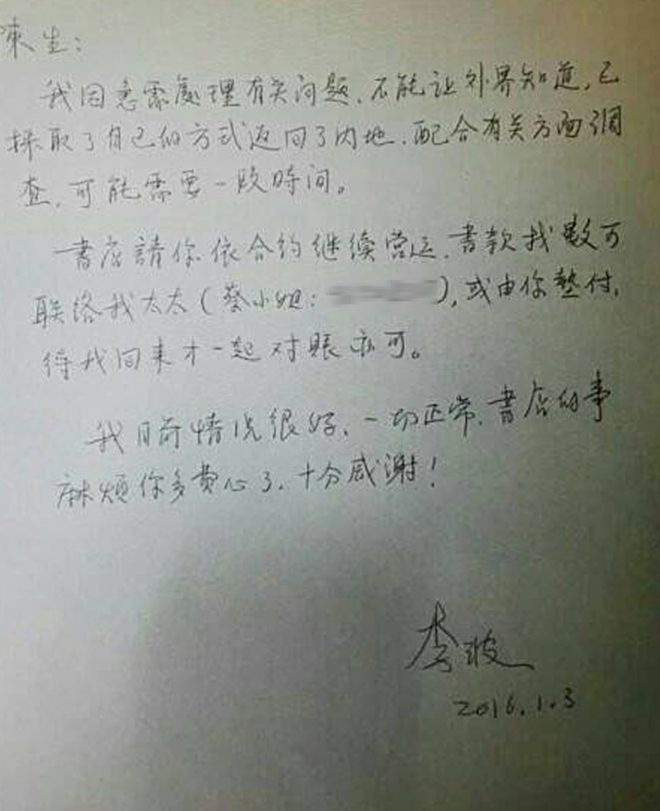 東生：
我因急需處理有关问题，不能让外界知道，已
採取了自己的方式返回了内地，配合有关方面调
查，可能需要一段時间。
書店請你依合約继续营运，書款找數可
联络我太太（蔡小姐：），或由你墊付，
待我回来才一起对賬亦可。
我目前情况很好，一切正常，書店的事
麻烦你多费心了，十分感谢！
李波
2016.1.3